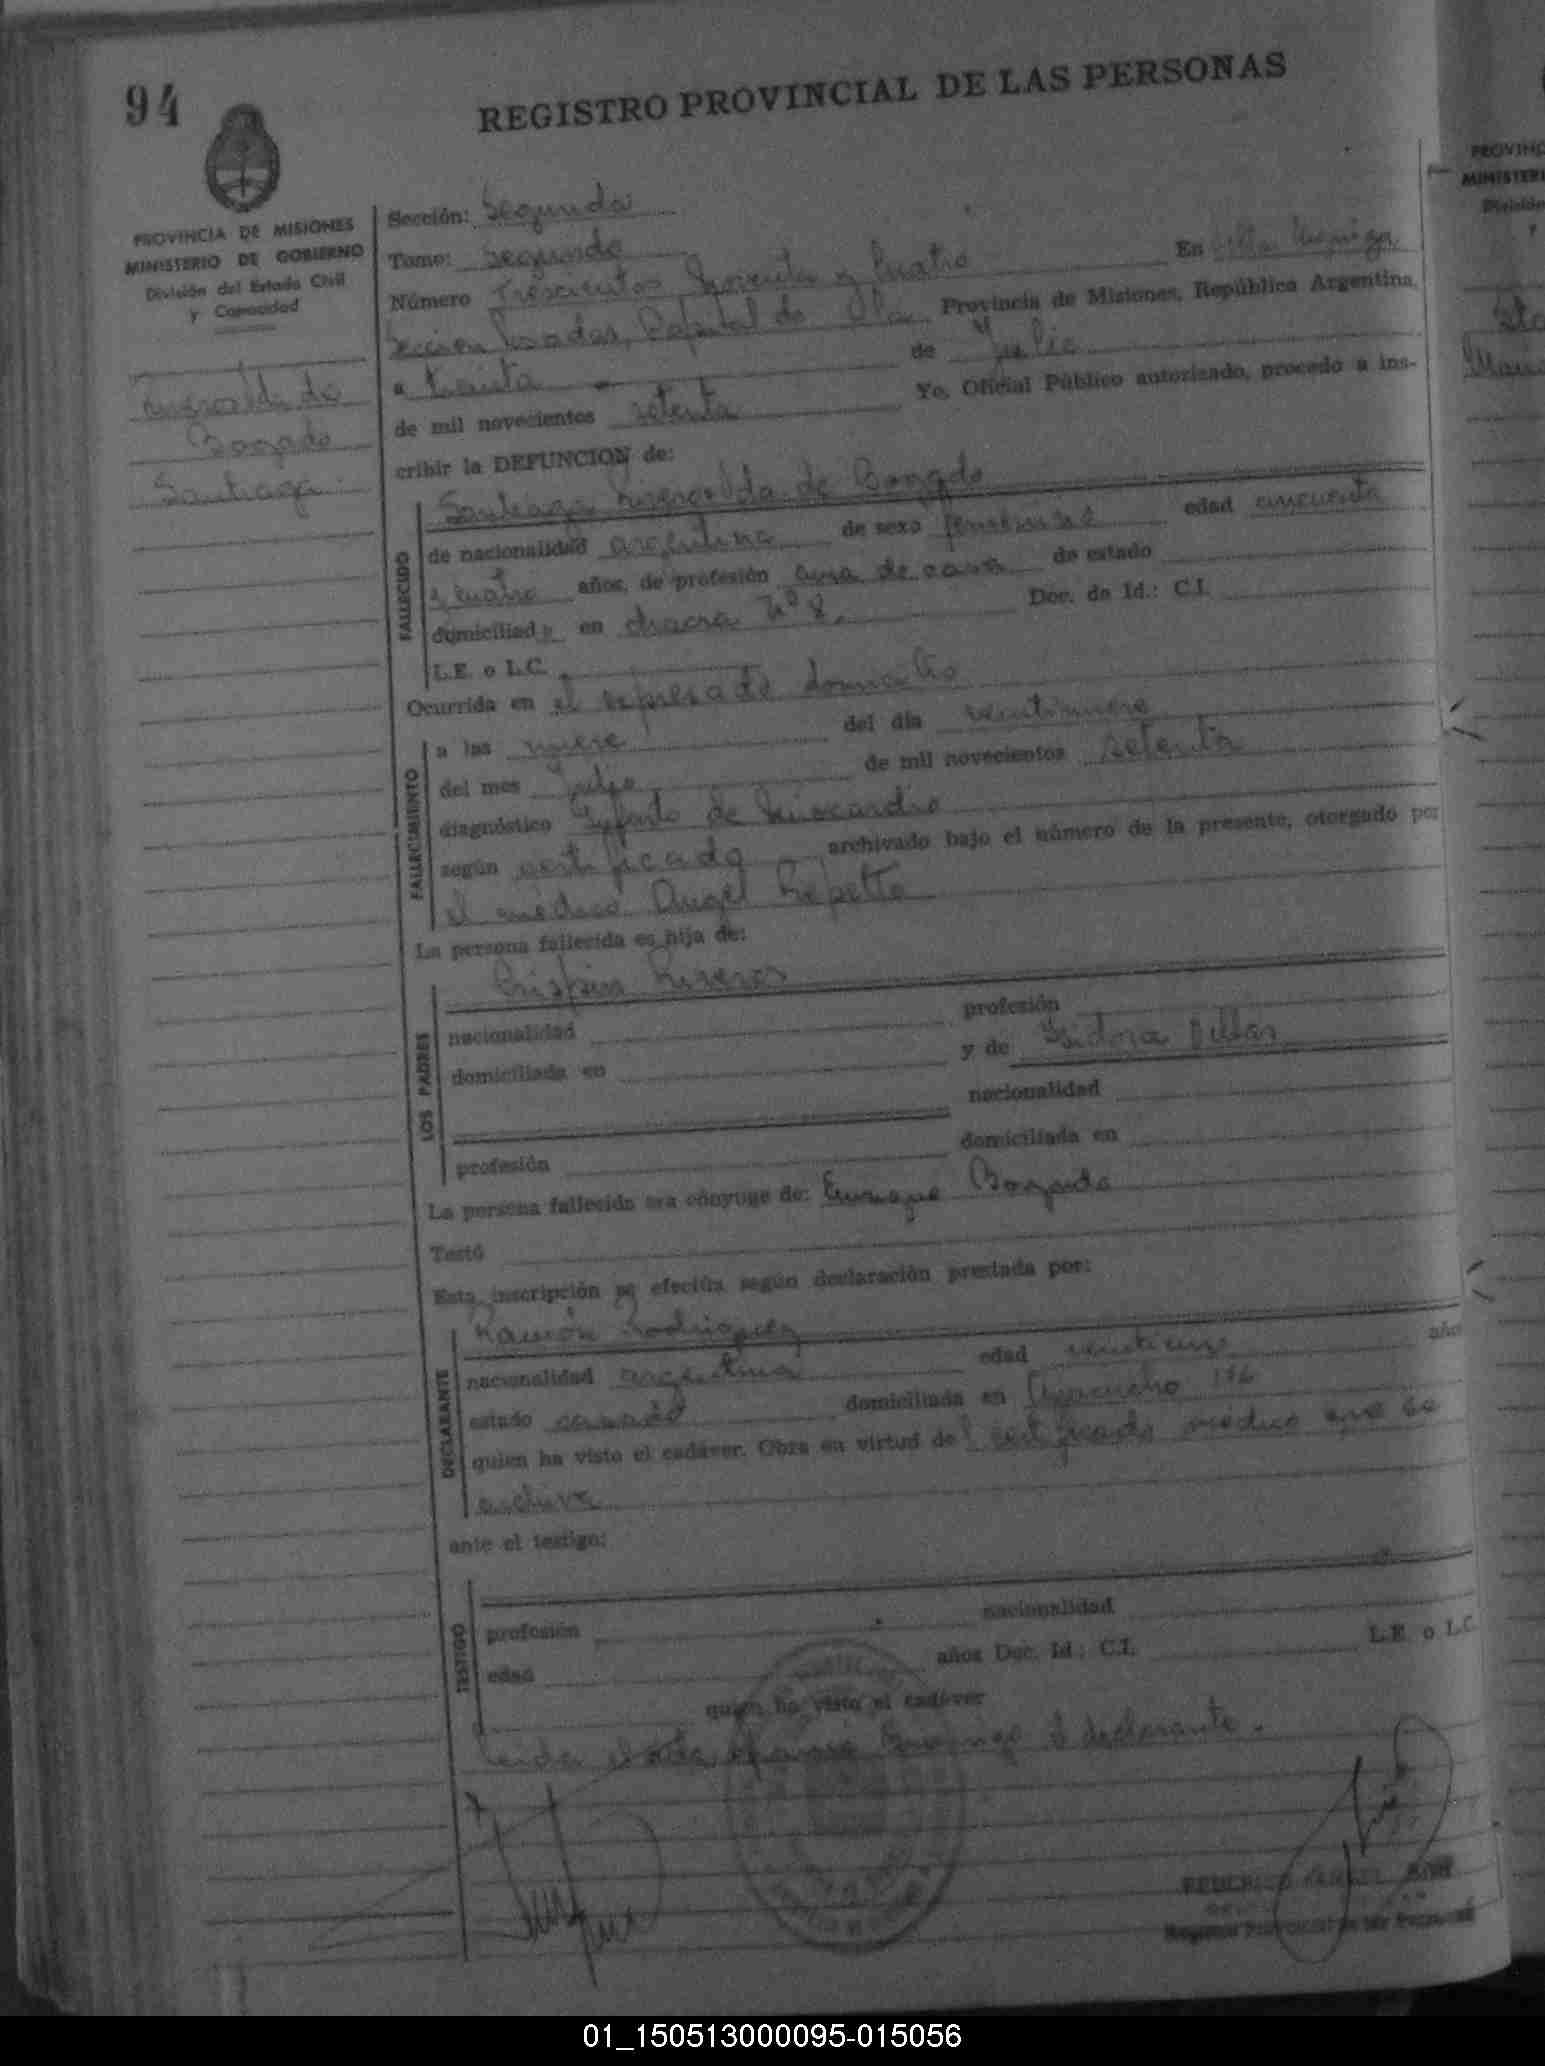 94
REGISTRO PROVINCIAL DE LAS PERSONAS
PROVINCIA DE MISIONES
MINISTERIO DE GOBIERNO
División del Estado Civil
y Capacidad
de
Bogado
Santiaga
Sección: Segunda
Tomo: segundo
Número Trescientos Noventa y Cuatro En Villa
Posadas, Capital de la Provincia de Misiones, República Argentina,
a treinta de Julio
de mil novecientos setenta Yo, Oficial Público autorizado, procedo a ins-
cribir la DEFUNCION de:
FALLECIDO
Santiaga de Bogado
de nacionalidad argentina de sexo femenino edad cincuenta
y cuatro años, de profesión ama de casa de estado
domiciliada en chacra Nº 8. Doc. de Id.: C.I.
L.E. o L.C.
Ocurrida en el expresado domicilio
FALLECIMIENTO
a las nueve del día veintinueve
del mes Julio de mil novecientos setenta
diagnóstico Infarto de Miocardio
según certificado archivado bajo el número de la presente, otorgado por
el médico Angel Repetto
La persona fallecida es hija de:
LOS PADRES
Crispin Riveros
nacionalidad profesión
domiciliada en y de Isidora
nacionalidad
profesión domiciliada en
La persona fallecida era cónyuge de: Enrique Bogado
Testó
Esta inscripción se efectúa según declaración prestada por:
DECLARANTE
Ramón Rodriguez
nacionalidad argentina edad años
estado casado domiciliada en Ayacucho
quien ha visto el cadáver. Obra en virtud del certificado médico que se
archiva
ante el testigo:
TESTIGO
profesión nacionalidad
edad años Doc. Id.: C.I. L.E. o L.C.
quien ha visto el cadáver
Leida el acta el declarante.
Registro Provincial de las Personas
PROVINC
MINISTERI
División
y
01_150513000095-015056